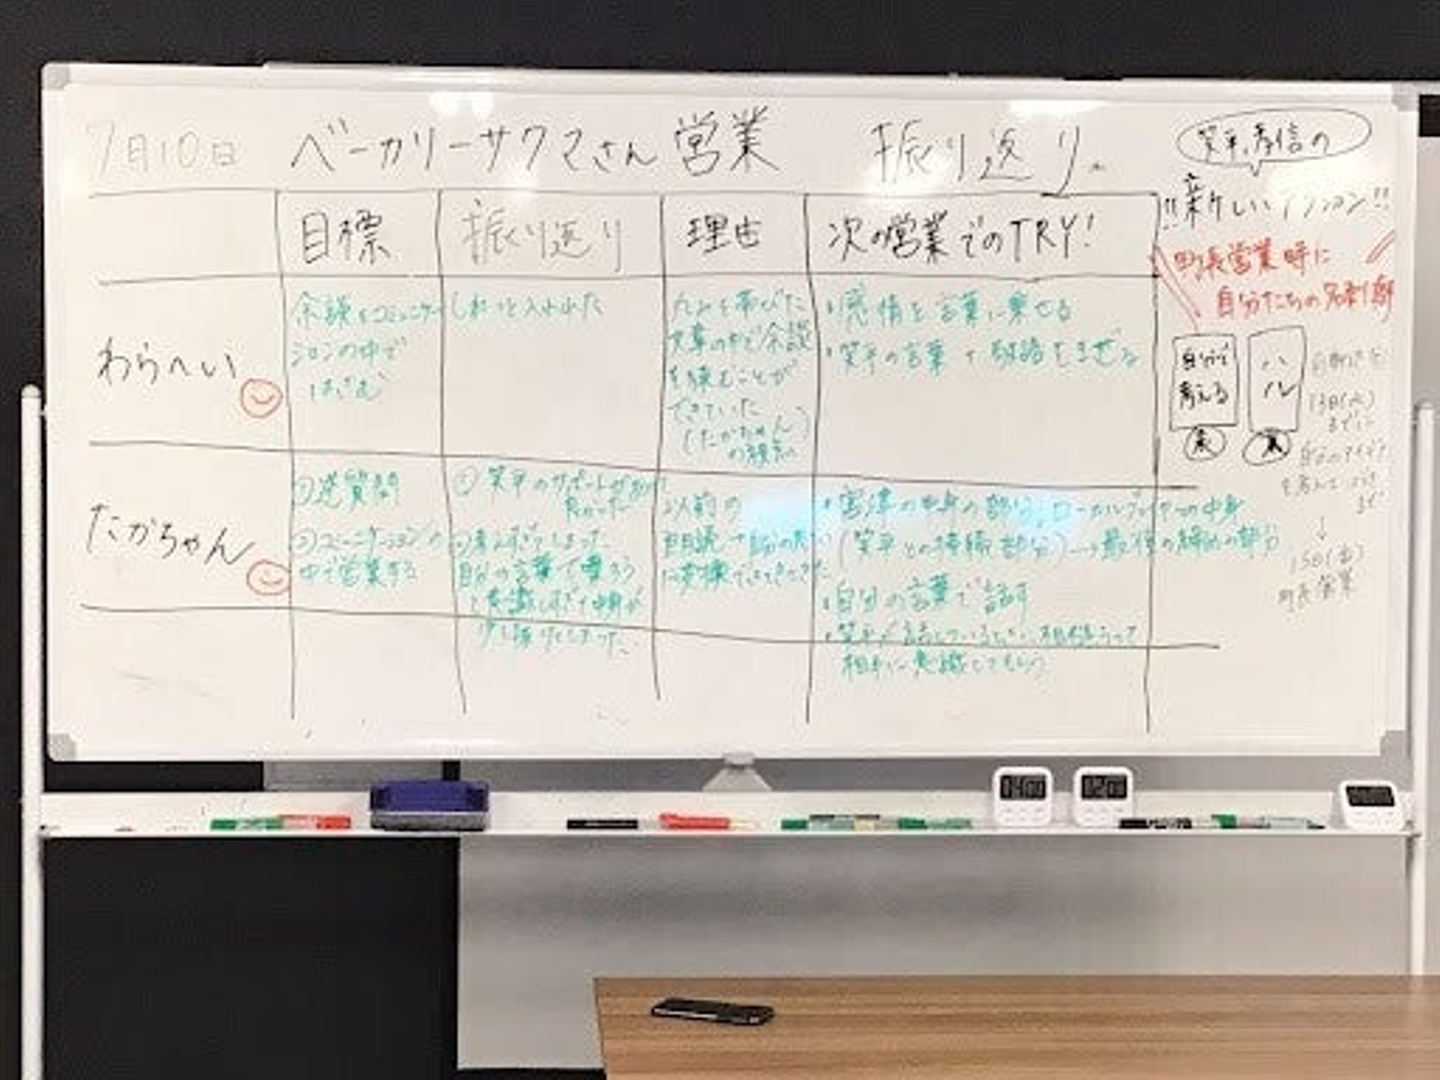 7月10日 ベーカリーサクマさん 営業 振り返り
目標 振り返り 理由 次の営業でのTRY!
わらへい
余談をコミュニケー
ションの中で
はさむ
しれっと入れれた
文章の中で余談
を挟むことが
できていた
(たかちゃん)
の観点
・感情を言葉に乗せる
・笑平の言葉
たかちゃん
①逆質問
②コミュニケーションの
中で営業する
①笑平のサポートがあって
良かった
自分の言葉で喋ろう
と意識しすぎて中身が
少し抜けてしまった。
以前の
・宮津の中身の部分、ローカルプレイヤーの中身
(笑平との接続部分)→最後の締めの部分
・自分の言葉で話す
・笑平が話しているときに相槌うって
相手に意識してもらう
笑平、孝信の
!!新しいアクション!!
町長営業時に
自分たちの名刺
自分で
考える
表
ハル
裏
13日(水)
までに
自分のアイデア
↓
15日(金)
町長営業